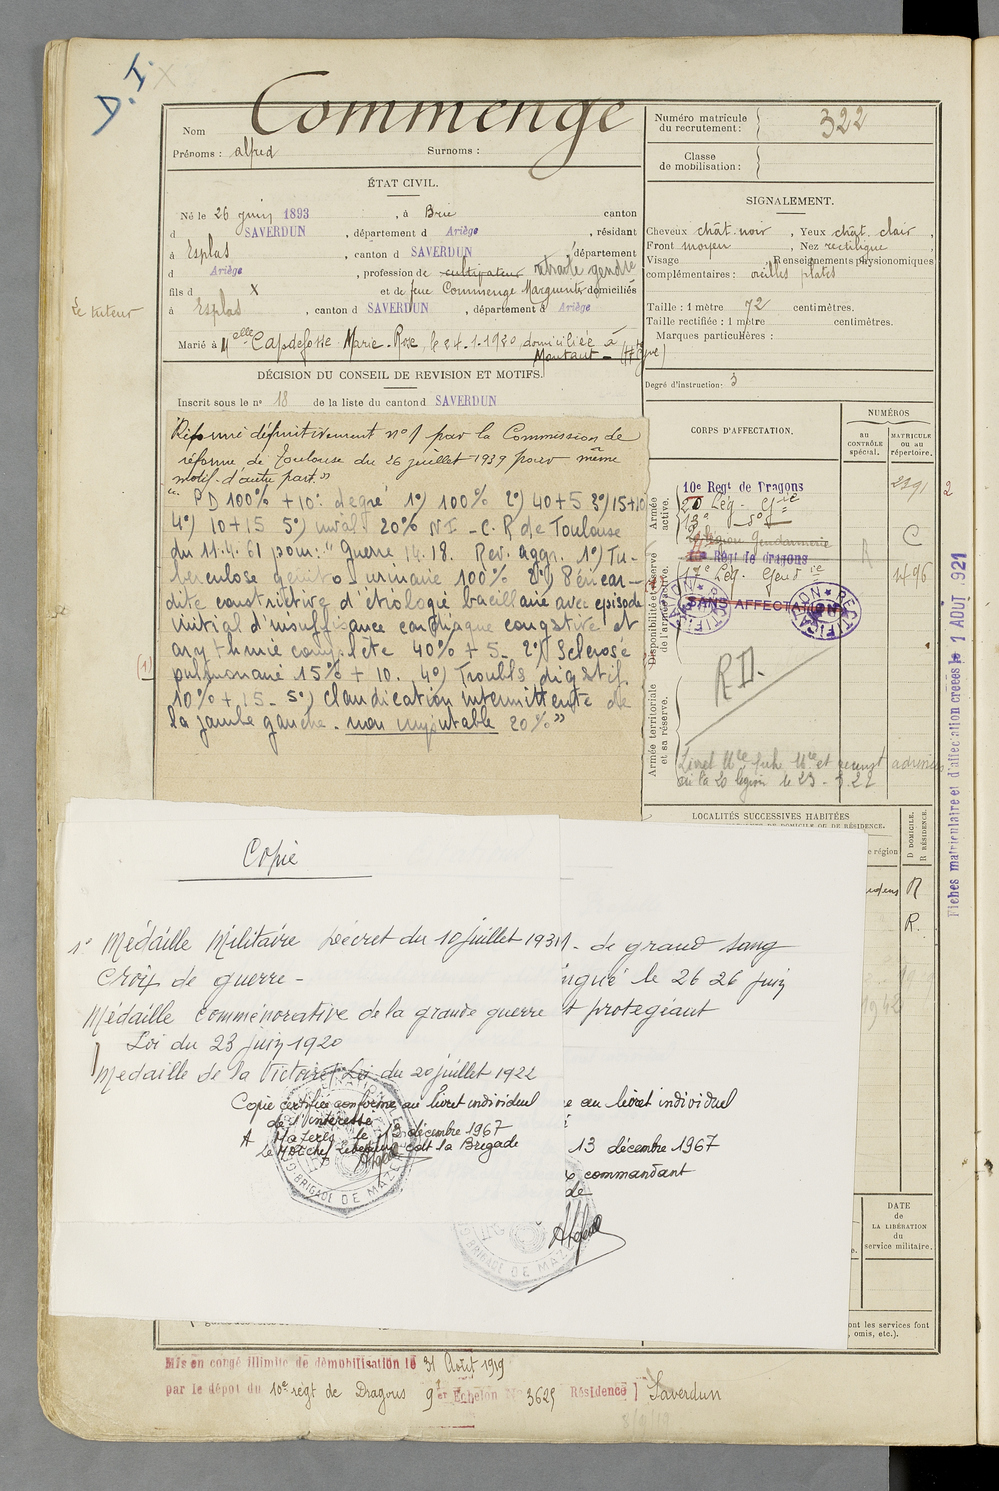 D.I.
Nom Commenge
Prénoms : alfred Surnoms :
ÉTAT CIVIL.
Né le 26 juin 1893 , à Brie canton
d SAVERDUN , département d Ariège , résidant
à Esplas , canton d SAVERDUN , département
d Ariège , profession de cultivateur retraité gendie
fils d X et de feue Commenge Marguerite domiciliés
à Esplas , canton d SAVERDUN , département d Ariège
Le tuteur
Marié à Melle Capdefosse Marie-Rose, le 24.1.1920, domiciliée à
Montaut - (Ariège)
DÉCISION DU CONSEIL DE REVISION ET MOTIFS.
Inscrit sous le no 18 de la liste du canton d SAVERDUN
Réformé définitivement no 1 par la Commission de
réforme de Toulouse du 26 juillet 1939 pour même
motif d'autre part."
" PD 100% + 10: degré 1°) 100% 2°) 40+5 3°) 15+10
4°) 10+15 5°) inval. 20% N I - C. R de Toulouse
du 11.4.61 pour: " Guerre 14.18. Rev. aggr. 1°) Tu-
berculose génito-urinaire 100% 2°) Péricar-
dite constrictive d'étiologie bacillaire avec épisode
initial d'insuffisance cardiaque congstive et
arythmie complète 40% + 5 - 2°) Sclérose
pulmonaire 15% + 10. 4°) Troubls digstif.
10% + 15 - 5°) Claudication intermittente de
la jambe gauche - non imputable 20%"
(1)
Numéro matricule
du recrutement : 322
Classe
de mobilisation :
SIGNALEMENT.
Cheveux chât. noir , Yeux chât. clair ,
Front moyen , Nez rectiligne ,
Visage Renseignements physionomiques
complémentaires : oreilles plates
Taille : 1 mètre 72 centimètres.
Taille rectifiée : 1 mètre centimètres.
Marques particulières :
Degré d'instruction : 3
CORPS D'AFFECTATION.
NUMÉROS
au
CONTRÔLE
spécial.
MATRICULE
ou au
répertoire.
Armée
active.
10e Régt de Dragons 2391 2
20 Lég. Gie
Légion Gendarmerie C
Régt de dragons R
17e Lég. Gend ie 1496
SANS AFFECTATION
RECTIFICATION
RECTIFICATION
Disponibilité et réserve
de l'armée active.
R.D.
Armée territoriale
et sa réserve.
Livret Mle fich. Mle et
à la 20 légion le 23 - 3.22
Fiches matriculaire et d'affectation créées le 1 AOUT 1921
LOCALITÉS SUCCESSIVES HABITÉES
D DOMICILE.
R RÉSIDENCE.
région
R
R.
1942
Copie
1° Médaille Militaire Décret du 10 juillet 1931 - de grand sang
Croix de guerre - ingué le 26 26 juin
Médaille commémorative de la grande guerre et protégeant
Loi du 23 juin 1920
Médaille de la Victoire Loi du 20 juillet 1922
Copie certifiée conforme au livret individuel
de l'intéressé
A Mazères le 13 décembre 1967
Le Mdl chef cdt la Brigade
BRIGADE DE MAZE
e au livret individuel
13 décembre 1967
commandant
de
BRIGADE DE MAZ
DATE
de
LA LIBÉRATION
du
service militaire.
ont les services font
, omis, etc.).
Mis en congé illimité de démobilisation le 31 Août 1919
par le dépôt du 10e régt de Dragons 9e Echelon No 3625 Résidence Saverdun